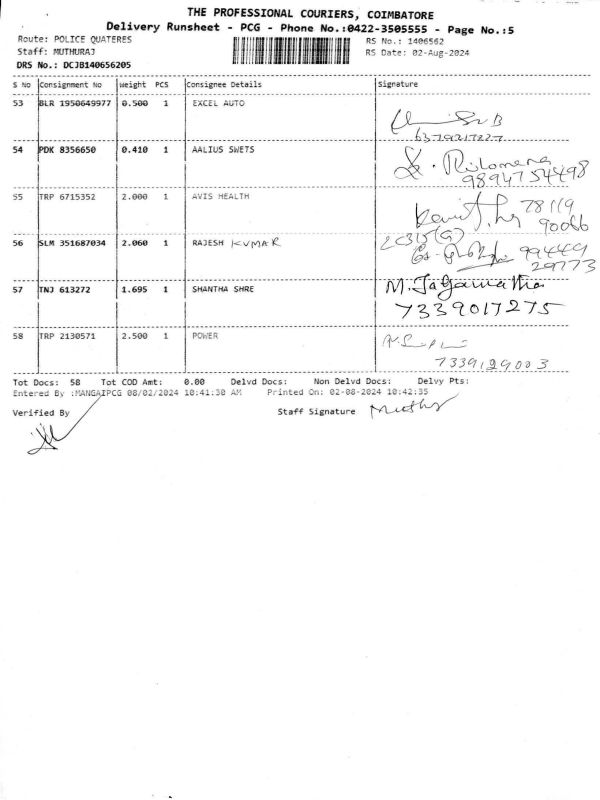 THE PROFESSIONAL COURIERS, COIMBATORE
Delivery Runsheet - PCG - Phone No.:0422-3505555 - Page No.:5
Route: POLICE QUATERES RS No.: 1406562
Staff: MUTHURAJ RS Date: 02-Aug-2024
DRS No.: DCJB140656205
S No Consignment No Weight PCS Consignee Details Signature
53 BLR 1950649977 0.500 1 EXCEL AUTO
6379217227
54 PDK 8356650 0.410 1 AALIUS SWETS
9894754498
55 TRP 6715352 2.000 1 AVIS HEALTH 78119
90066
56 SLM 351687034 2.060 1 RAJESH KUMAR 99449
29773
57 TNJ 613272 1.695 1 SHANTHA SHRE M. Jagannatha
7339017275
58 TRP 2130571 2.500 1 POWER
7339129003
Tot Docs: 58 Tot COD Amt: 0.00 Delvd Docs: Non Delvd Docs: Delvy Pts:
Entered By :MANGAIPCG 08/02/2024 10:41:30 AM Printed On: 02-08-2024 10:42:35
Verified By Staff Signature Muthu